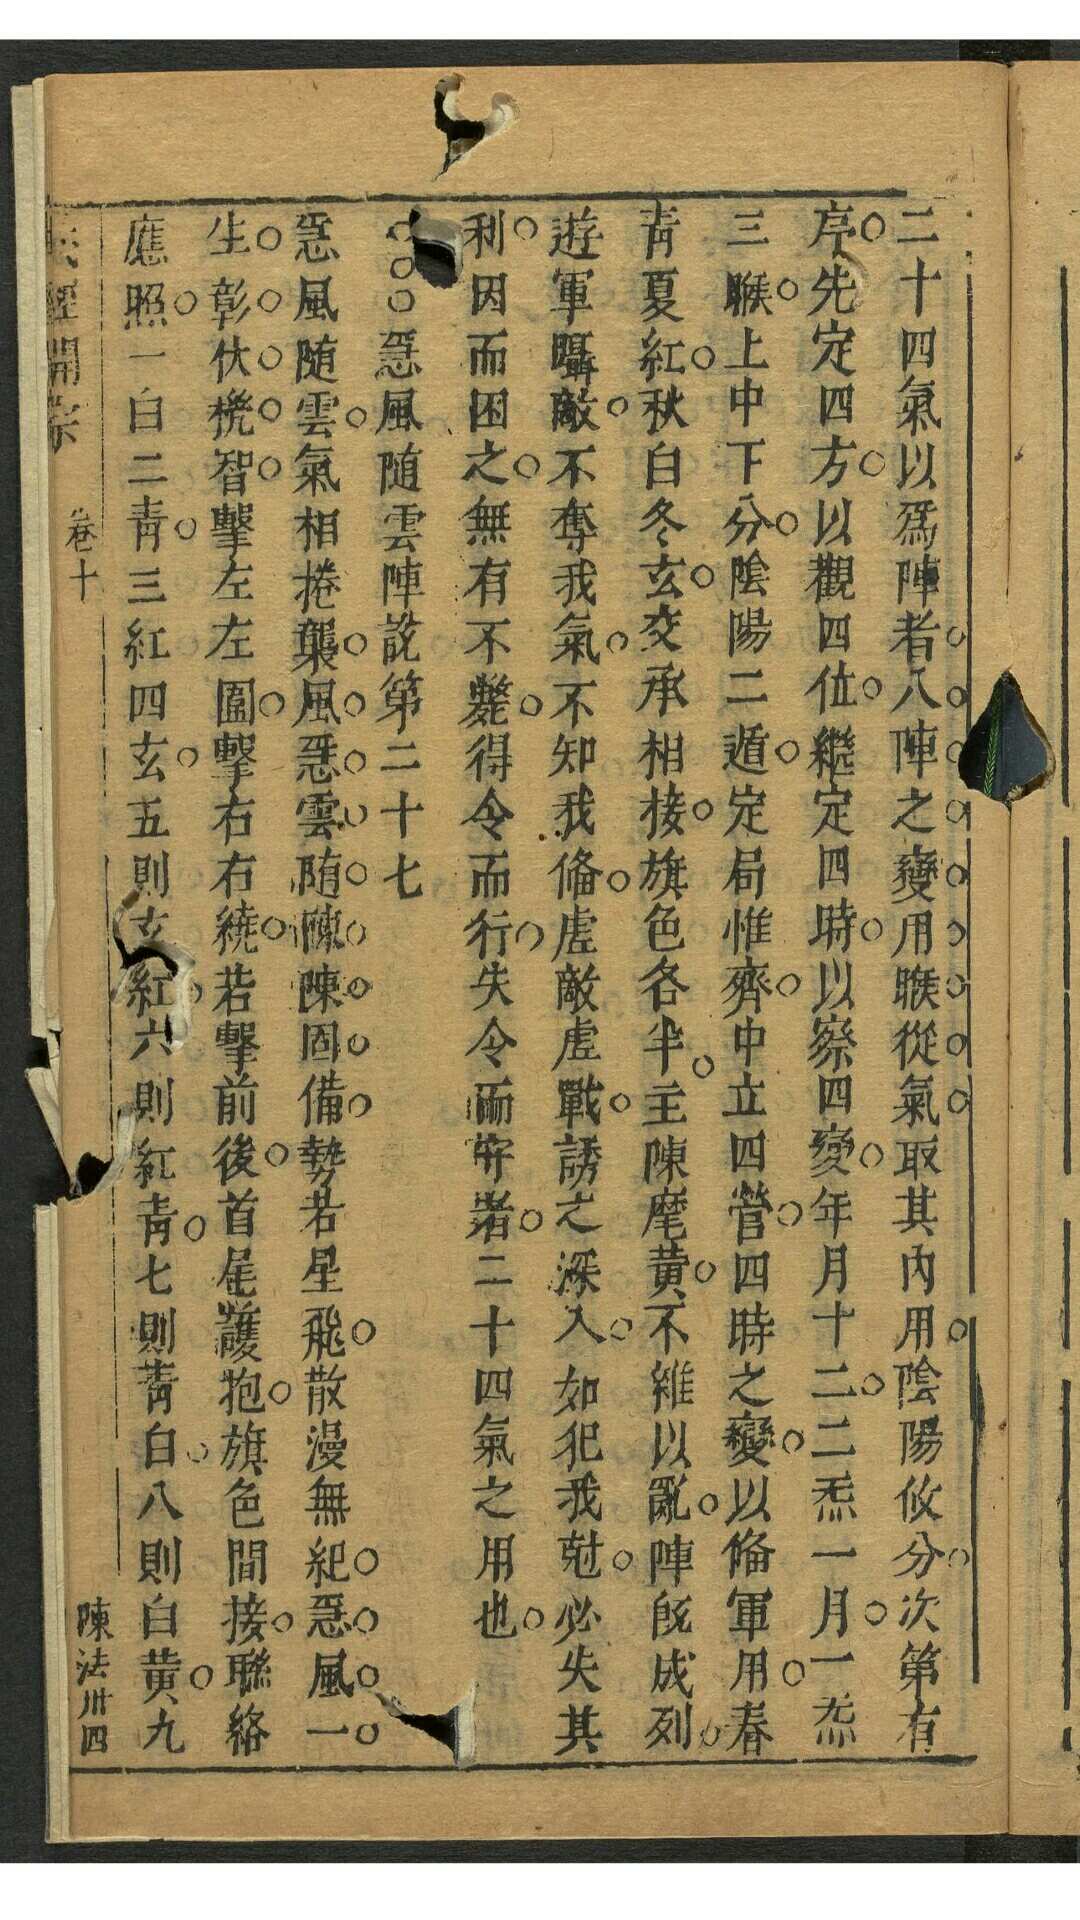 二十四氣以爲陣者八陣之變用睺從氣取其內用陰陽攸分次第有
序先定四方以觀四位繼定四時以察四變年月十二二炁一月一炁
三睺上中下分陰陽二遁定局惟齊中立四營四時之變以俻軍用春
青夏紅秋白冬玄交承相接旗色各半主陳麾黃不維以亂陣旣成列
遊軍囁敵不奪我氣不知我俻虛敵虛戰誘之深入如犯我尅必失其
利因而困之無有不斃得令而行失令而守者二十四氣之用也
惡風随雲陣說第二十七
惡風随雲氣相捲襲風惡雲随陳陳固備勢若星飛散漫無紀惡風一
生彰伏㧡智擊左左圍擊右右繞若擊前後首尾護抱旗色間接聯絡
應照一白二青三紅四玄五則玄紅六則紅青七則青白八則白黃九
經開宗 卷十 陳法卅四